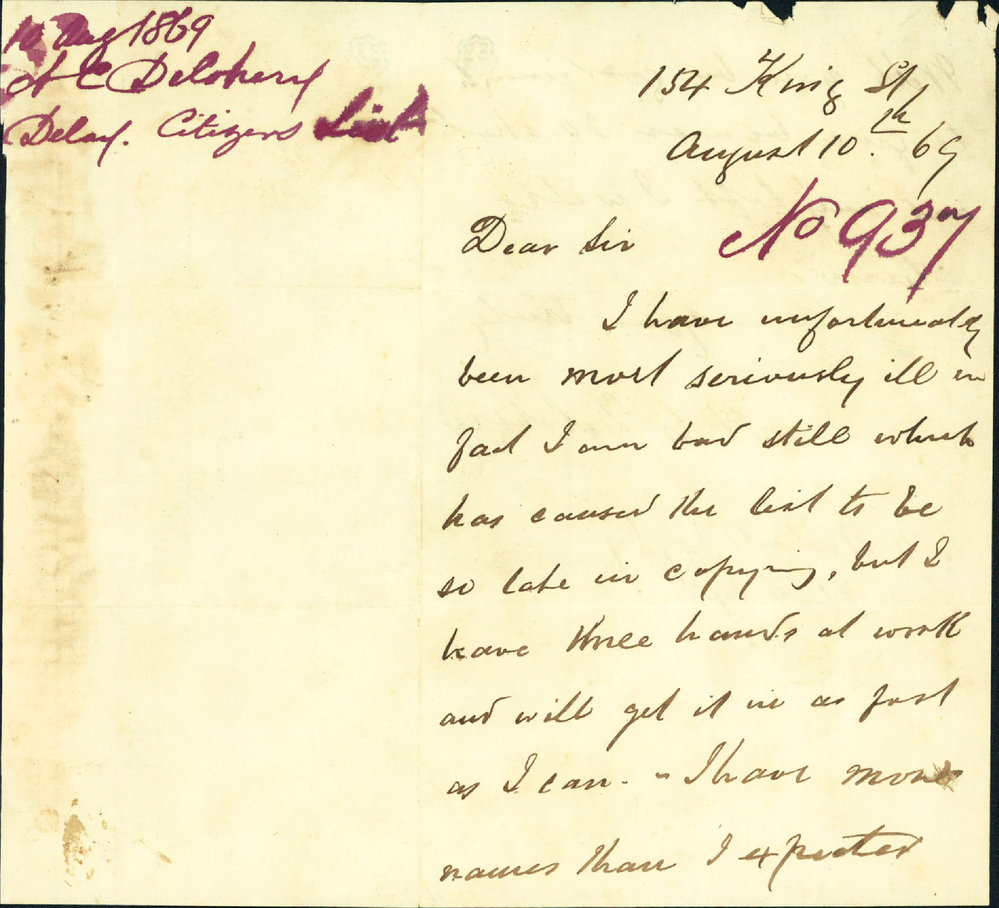 10 Aug 1869
A C Delohery
Delay. Citizens List
154 King St
August 10th. 69
No 937
Dear Sir
I have unfortunately
been most seriously ill in
fact I am bad still which
has caused the list to be
so late in copying, but I
have three hands at work
and will get it in as fast
as I can. - I have more
names than I expected